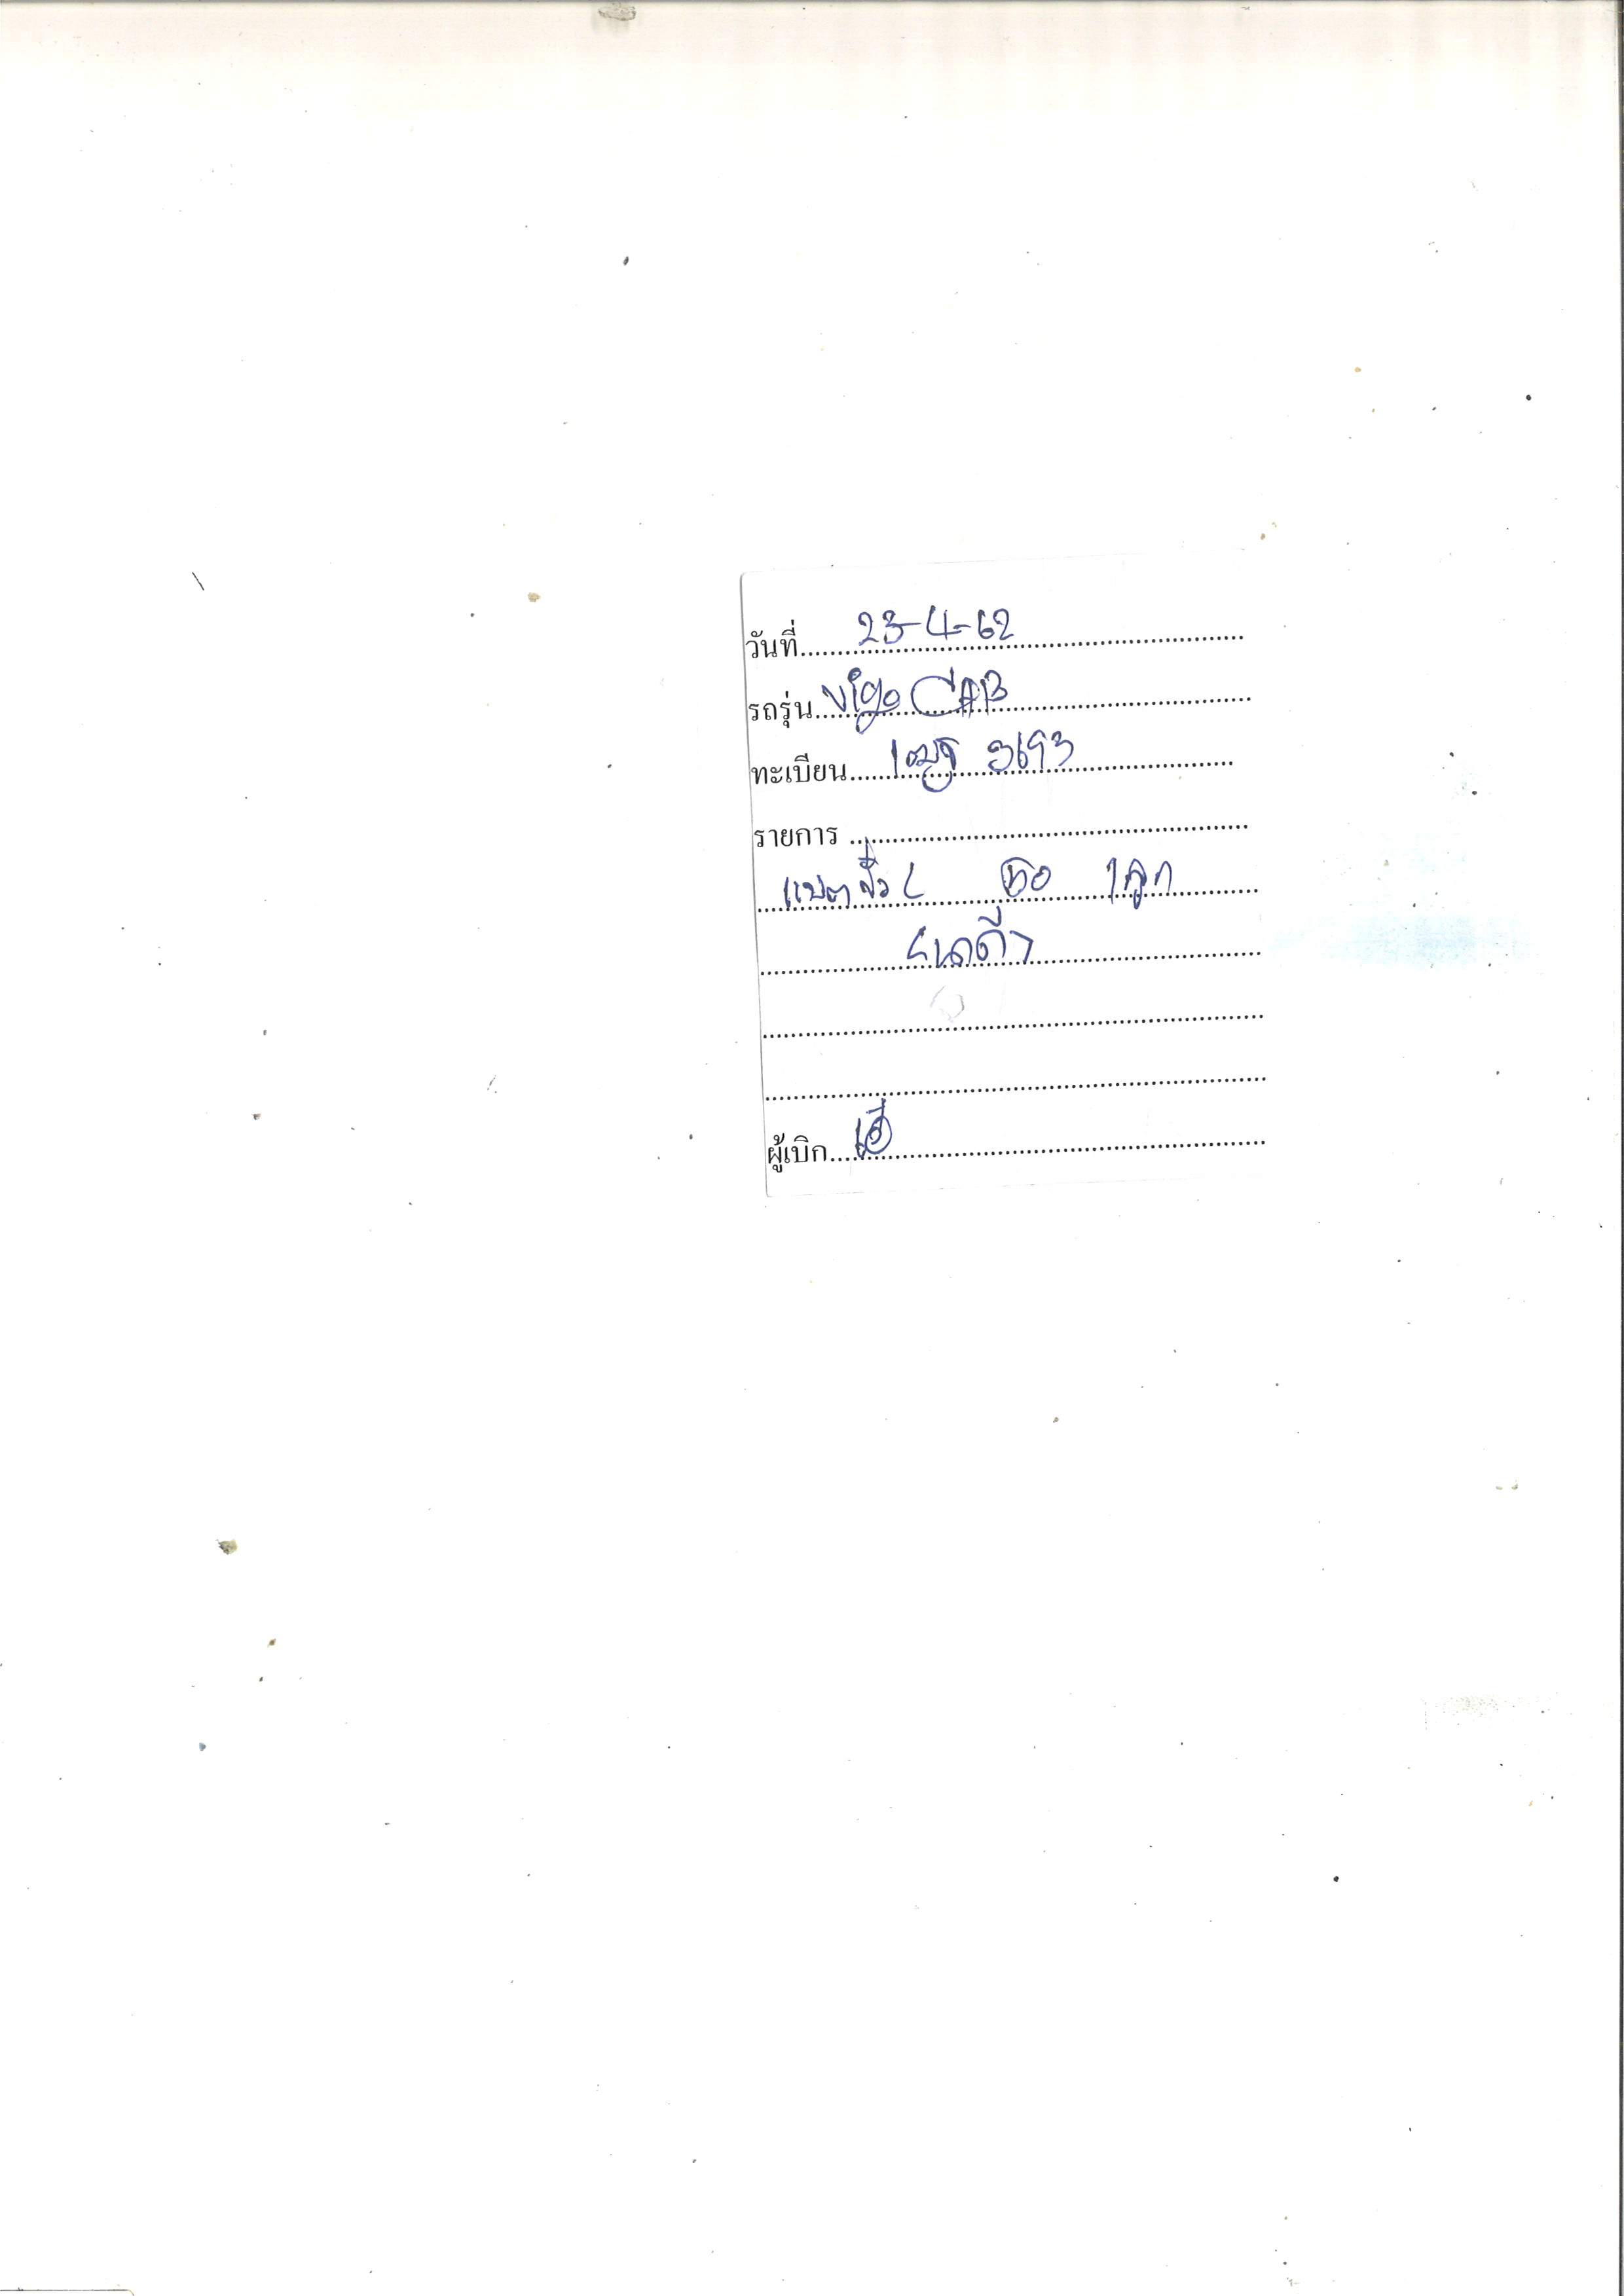 วันที่ 23-4-62
รถรุ่น VIgo CAB
ทะเบียน 1ฒฐ 3693
รายการ
แบตขั้ว L 1ลูก
ผู้เบิก